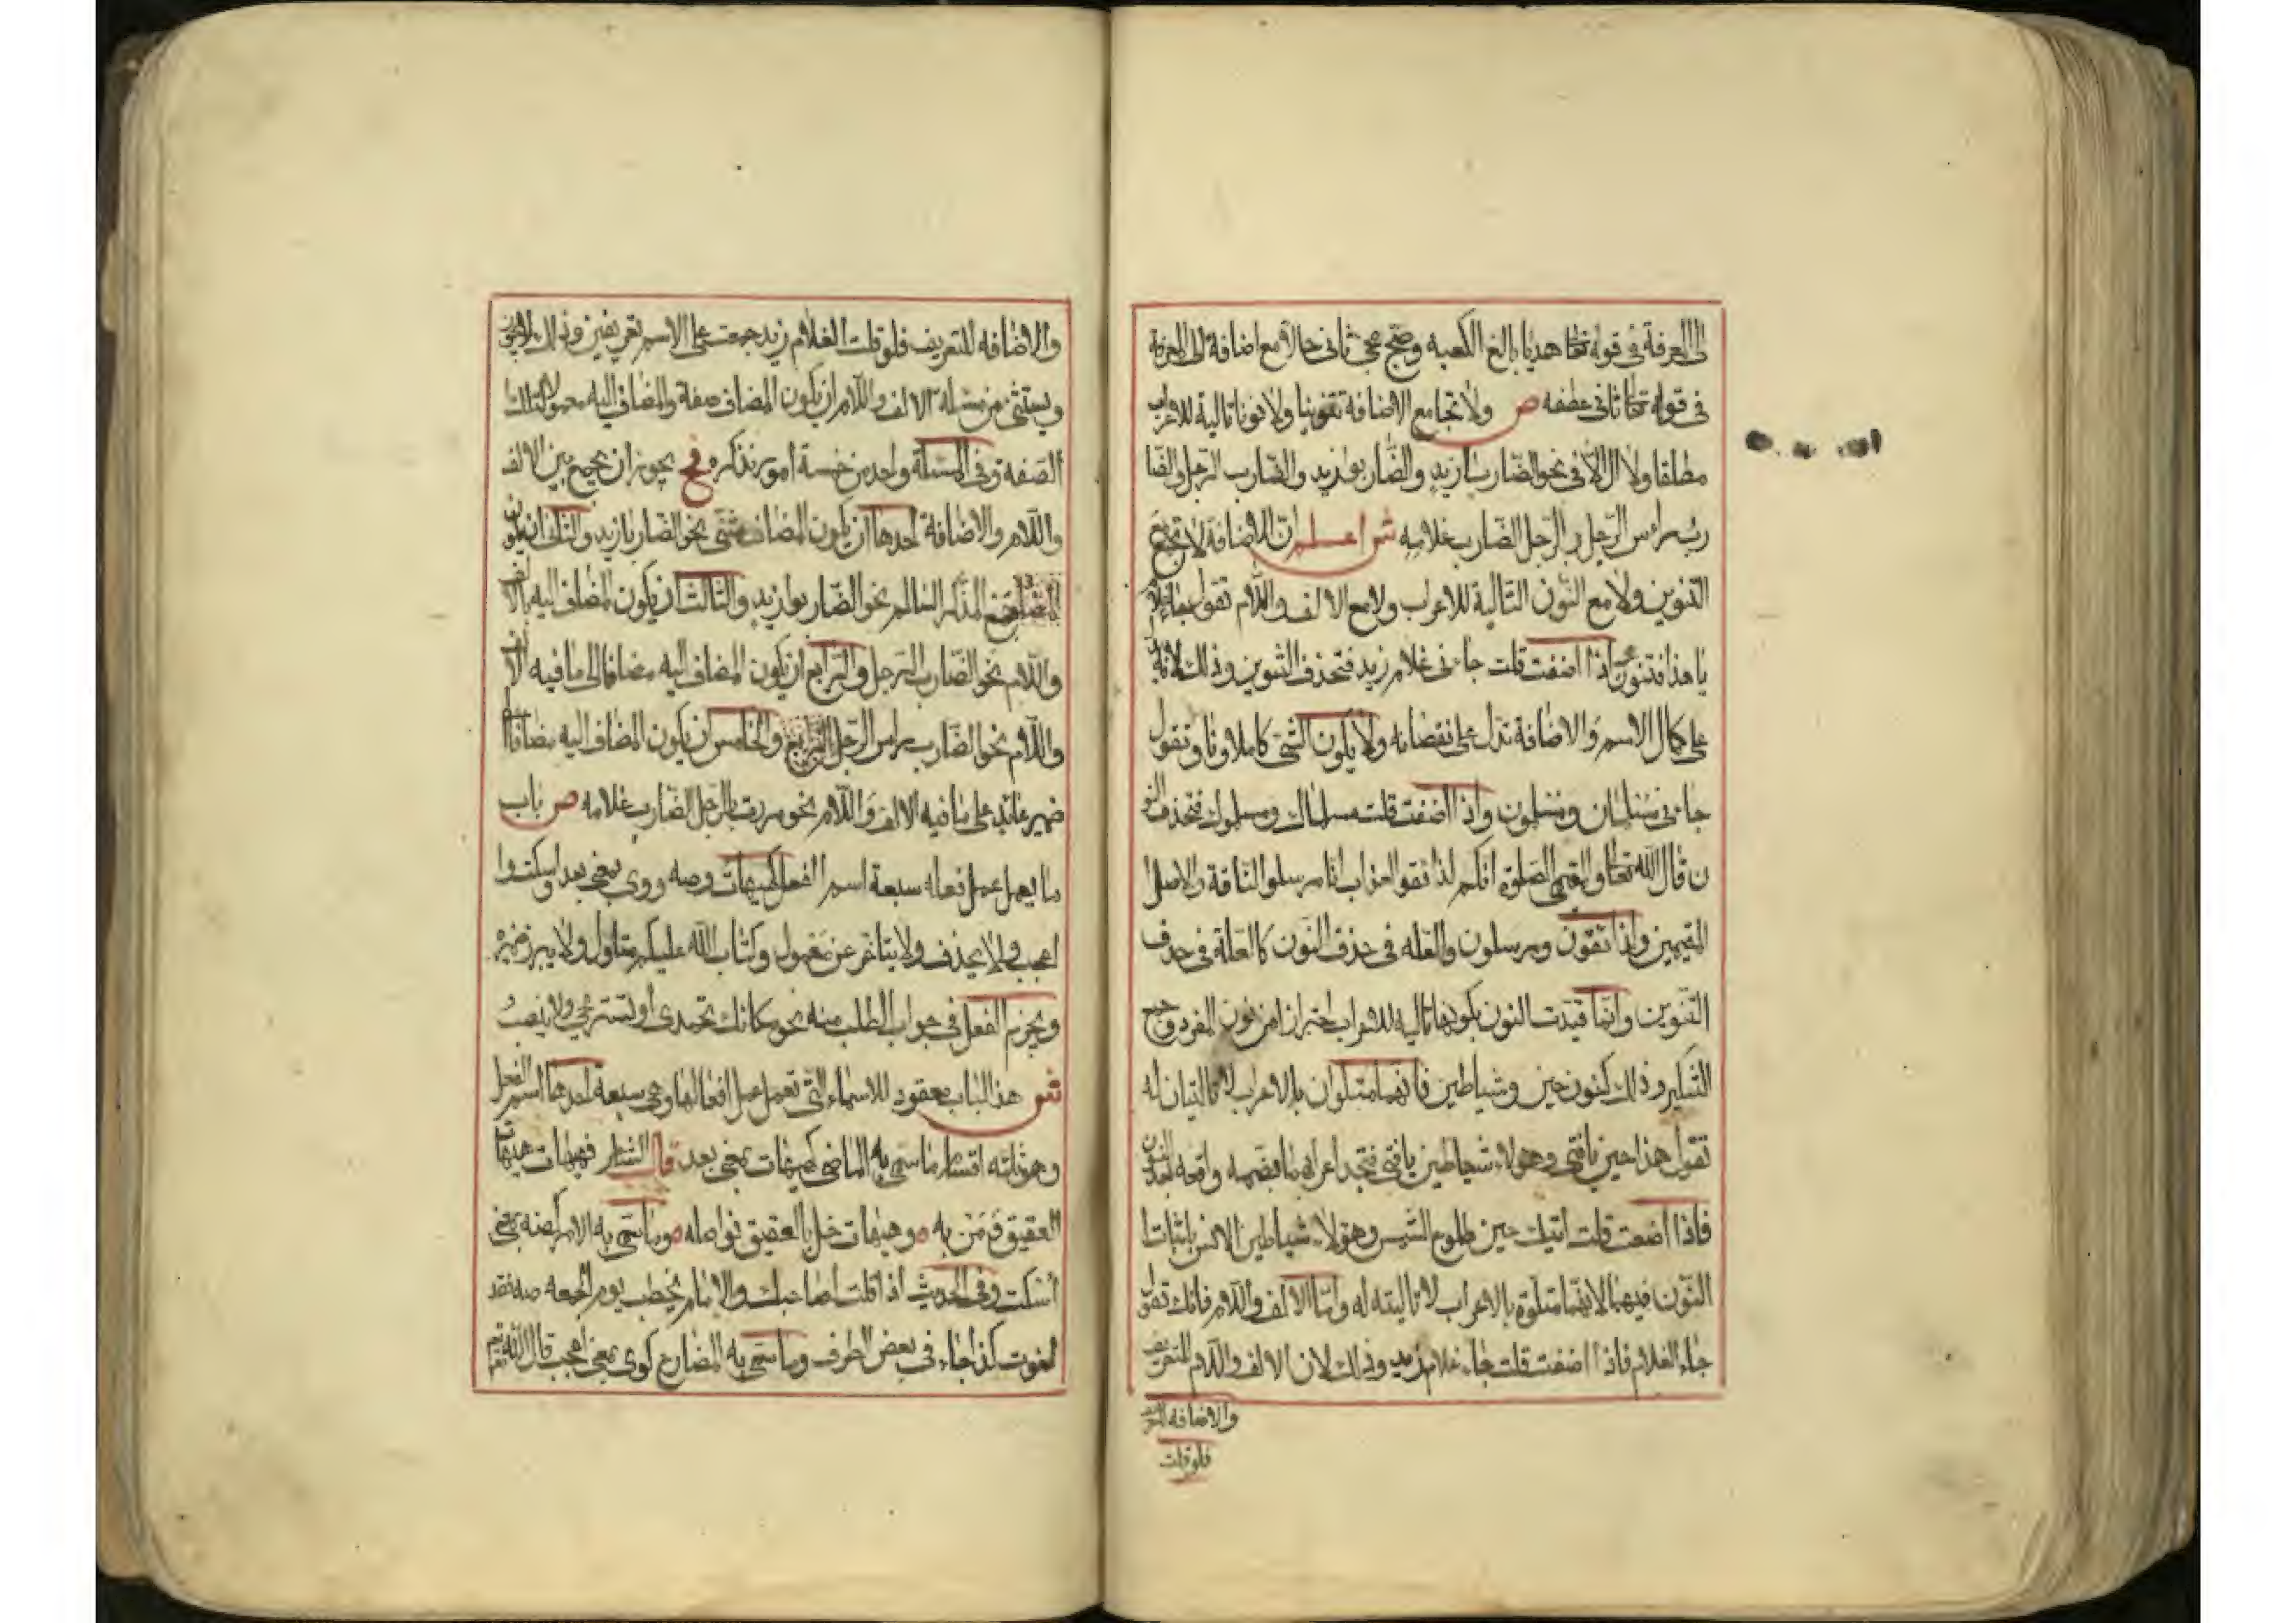 الى المعرفة في قوله تعا هديا بالغ الكعبه وصحّ مجئ ثاني حالا مع اضافة الى المعرفة
في قوله تعا ثاني عطفه ص ولا تجامع الاضافة تنوينا ولا نونا تالية للاعراب
مطلقا ولا ال الا في نحو الضاربا زيد والضاربو زيد والضارب الرجل والضا
رب راس الرجل و الرجل الضارب غلامه ش اعلم ان الاضافة لا تجتمع مع
التنوين ولا مع النون التالية للاعراب ولا مع الالف واللام تقول جاءني غلام
يا هذا فتنون اذا اضفت قلت جاءني غلام زيد فتحذف التنوين وذلك لانه يدل
على كمال الاسم والاضافة تدل على نقصانه ولا يكون الشئ كاملا وناقصا وتقول
جاءني مسلمان ومسلمون واذا اضفت قلت مسلماك ومسلموك فتحذف النو
ن قال الله تعا والمقيمي الصلوة انكم لذائقو العذاب انا مرسلو الناقة والاصل
المقيمين ولذائقون ومرسلون والعله في حذف النون كالعلة في حذف
التنوين وانما قيدت النون بكونها تاليه للاعراب احترازا من نون المفرد وجمع
التكسير وذلك كنون حين وشياطين فانهما متلوان بالاعراب لا تاليان له
تقول هذا حين يا فتى وهولاء شياطين يا فتى فتجد اعرابها بضمه واقعه بعد النون
فاذا اضفت قلت اتيك حين طلوع الشمس وهولاء شياطين الانس باثبات
النون فيهما لانهما متلوة بالاعراب لا تاليته له واما الالف واللام فانك تقول
جاء الغلام فاذا اضفت قلت جاء غلام زيد وذلك لان الالف واللام للتعريف
والاضافه للتعريف
فلو قلت
والاضافه للتعريف فلو قلت الغلام زيد جمعت على الاسم تعريفين وذلك لا يجوز
ويستثنى من مسئله الالف واللام ان يكون المضاف صفة والمضاف اليه معمولا لتلك
الصفه وفي المسئلة واحد من خمسة امور تذكره فح يجوز ان يجمع بين الالف
واللام والاضافة احدها ان يكون المضاف مثنى نحو الضاربا زيد والثاني ان يكون
جمع المذكر السالم نحو الضاربو زيد والثالث ان يكون المضاف اليه بالالف
واللام نحو الضارب الرجل والرابع ان يكون المضاف اليه مضافا الى ما فيه الالف
واللام نحو الضارب راس الرجل والخامس ان يكون المضاف اليه مضافا الى
ضمير عائد على ما فيه الالف واللام نحو مررت بالرجل الضارب غلامه ص باب
ما يعمل عمل فعله سبعة اسم الفعل كهيهات وصه ووى بمعنى بعد واسكت وا
عجب ولا يحذف ولا يتاخر عن معمول وكتاب الله عليكم متاول ولا يبرز ضميره
ويجزم الفعل في جواب الطلب منه نحو مكانك تحمدي او تستريحي ولا ينصب
ش هذا الباب معقود للاسماء التي تعمل عمل افعالها وهي سبعة احدها اسم الفعل
وهو ثلثه اقسام ما سمي به الماضي كهيهات بمعنى بعد قال الشاعر فهيهات هيهات
العقيق ومن به ٥ وهيهات خل بالعقيق نواصله ٥ وما سمي به الامر كصه بمعنى
اسكت وفي الحديث اذا قلت لصاحبك والامام يخطب يوم الجمعه صه فقد
لغوت كذا جاء في بعض الطرف وما سمي به المضارع كوى بمعنى اعجب قال الله تع